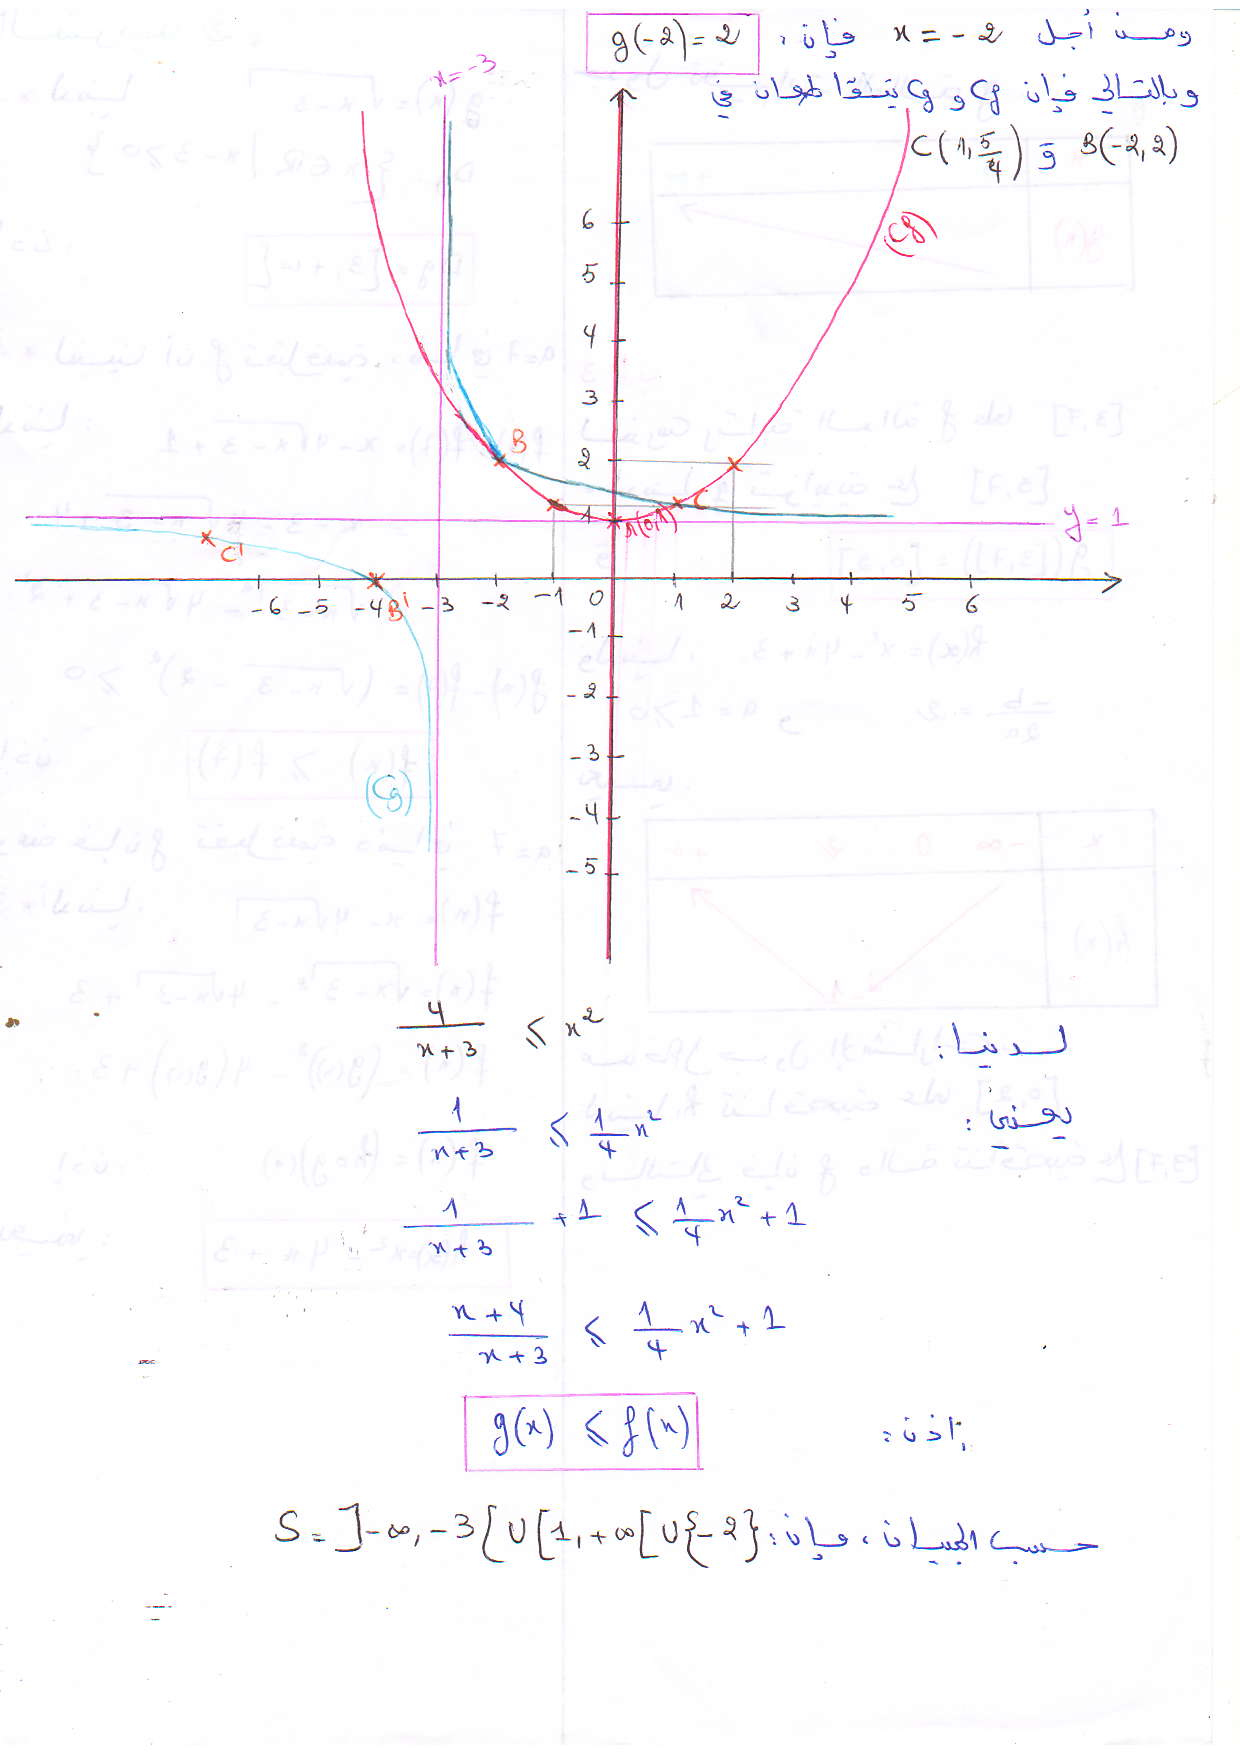 ومن أجل x = -2 فإن: g(-2) = 2
وبالتالي فإن Cf و Cg يتقاطعان في
B(-2,2) و C(1, 5/4)
x = -3
(Cf)
6
5
4
3
2
1
B
C
A(0,1)
y = 1
C'
B'
-6 -5 -4 -3 -2 -1 0 1 2 3 4 5 6
-1
-2
-3
-4
-5
(Cg)
لدينا: 4/(x+3) ≤ x²
يعني: 1/(x+3) ≤ 1/4 x²
1/(x+3) + 1 ≤ 1/4 x² + 1
(x+4)/(x+3) ≤ 1/4 x² + 1
إذن: g(x) ≤ f(x)
حسب البيان، فإن: S = ]-∞, -3[ ∪ [1, +∞[ ∪ {-2}